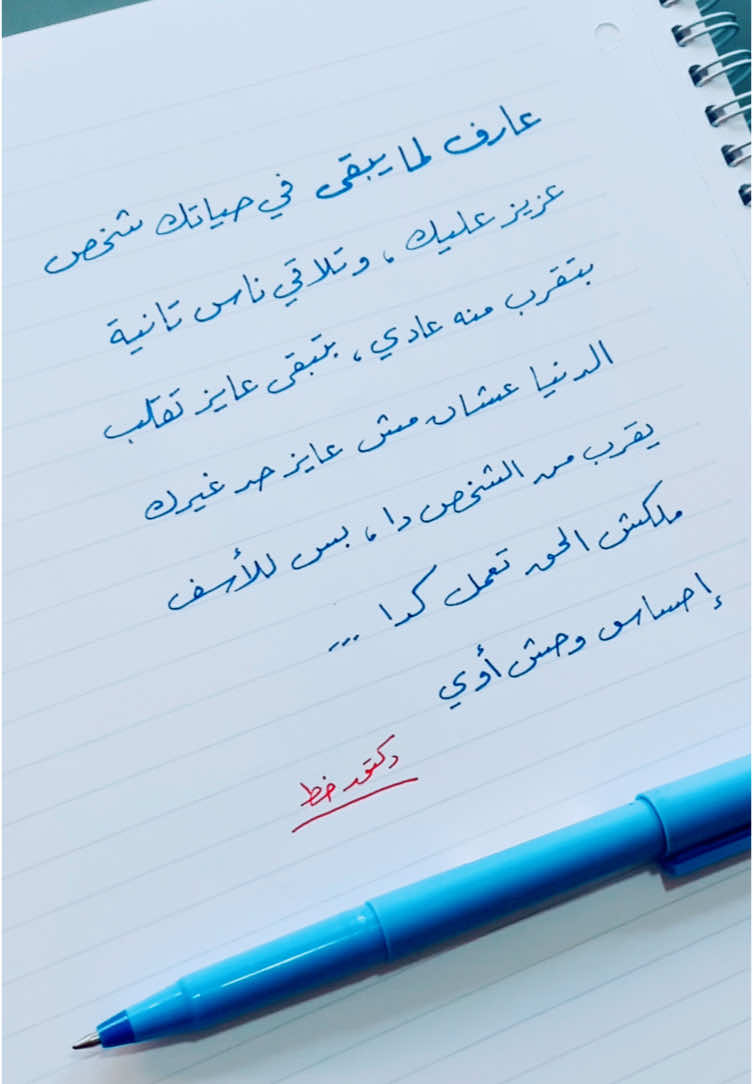 عارف لما يبقى في حياتك شخص
عزيز عليك، وتلاقي ناس تانية
بتقرب منه عادي، بتبقى عايز تقلب
الدنيا عشان مش عايز حد غيرك
يقرب من الشخص دا، بس للأسف
ملكش الحق تعمل كدا ...
إحساس وحش أوي
دكتور خط